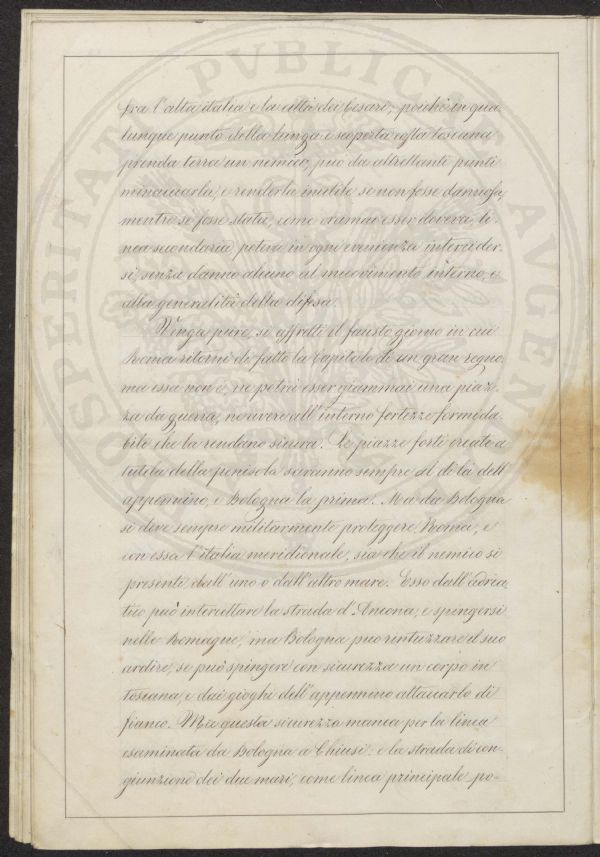 PROSPERITATI PVBLICAE AVGENDAE
fra l'alta italia e la città dei Cesari, poichè in qua
lunque punto della lunga e scoperta costa toscana
prenda terra un nemico, può da altrettanti punti
minacciarla, e renderla inutile se non fosse dannosa,
mentre se fosse stata, come oramai esser doveva, li-
nea secondaria, poteva in ogni evenienza interceder
si, senza danno alcuno al muovimento interno, e
alla generalità della difesa.
Venga pure, si affretti il fausto giorno in cui
Roma ritorni di fatto la capitale di un gran regno,
ma essa non è, ne potrà esser giammai una piaz-
za da guerra, ne avere all'interno fortezze formida-
bili che la rendano sicura. Le piazze forti create a
tutela della penisola saranno sempre al di là dell'
appennino, e Bologna la prima. Ma da Bologna
si deve sempre militarmente proteggere Roma, e
con essa l'italia meridionale, sia che il nemico si
presenti, dall'uno o dall'altro mare. Esso dall'adria
tico può intercettare la strada d'Ancona, e spingersi
nelle Romagne, ma Bologna può rintuzzare il suo
ardire, se può spingere con sicurezza un corpo in
toscana, e dai gioghi dell'appennino attaccarlo di
fianco. Ma questa sicurezza manca per la linea
esaminata da Bologna a Chiusi: e la strada di con-
giunzione dei due mari, come linea principale po-